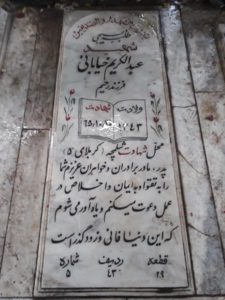 شهید
عبدالکریم خیابانی
فرزند رحیم
ولادت شهادت
۴۳
محل شهادت شلمچه (کربلای ۵)
پدر، مادر برادران و خواهران عزیزم شما
را به تقوا و به ایمان و اخلاص در
عمل دعوت میکنم و یادآور می شوم
که این دنیا فانی و زودگذر است
قطعه ردیف شماره
۲۹ ۴۳ ۵